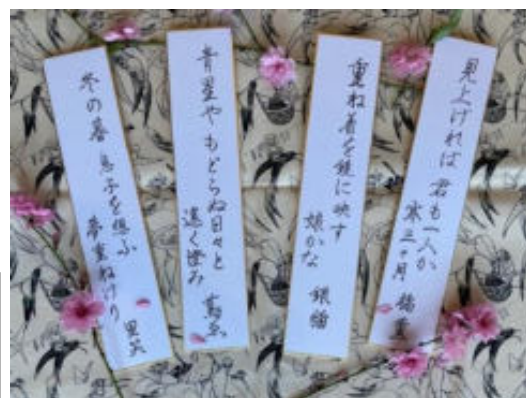 見上げれば 君も一人か
寒三日月
重ね着を鏡に映す
娘かな 銀猫
青星や もどらぬ日々と
遠く澄み
冬の暮 息子を想ふ
夢重ねけり 里英